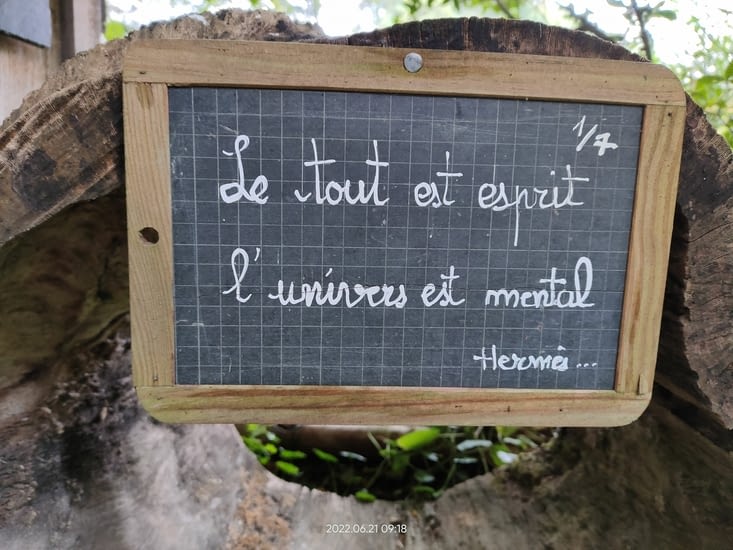 1/7
Le tout est esprit
l'univers est mental
Hermès...
2022.06.21 09:18